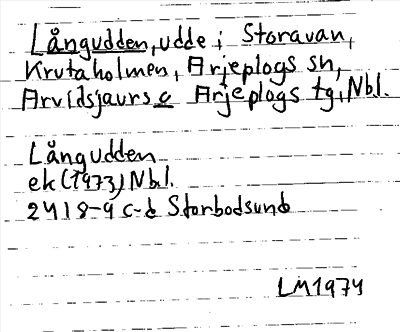 Långudden, udde i Storavan,
Krutaholmen, Arjeplogs sn,
Arvidsjaurs o Arjeplogs tg, Nbl.
Långudden
ek (1973) Nbl.
241 8-9 c-d Storbodsund
LM1974